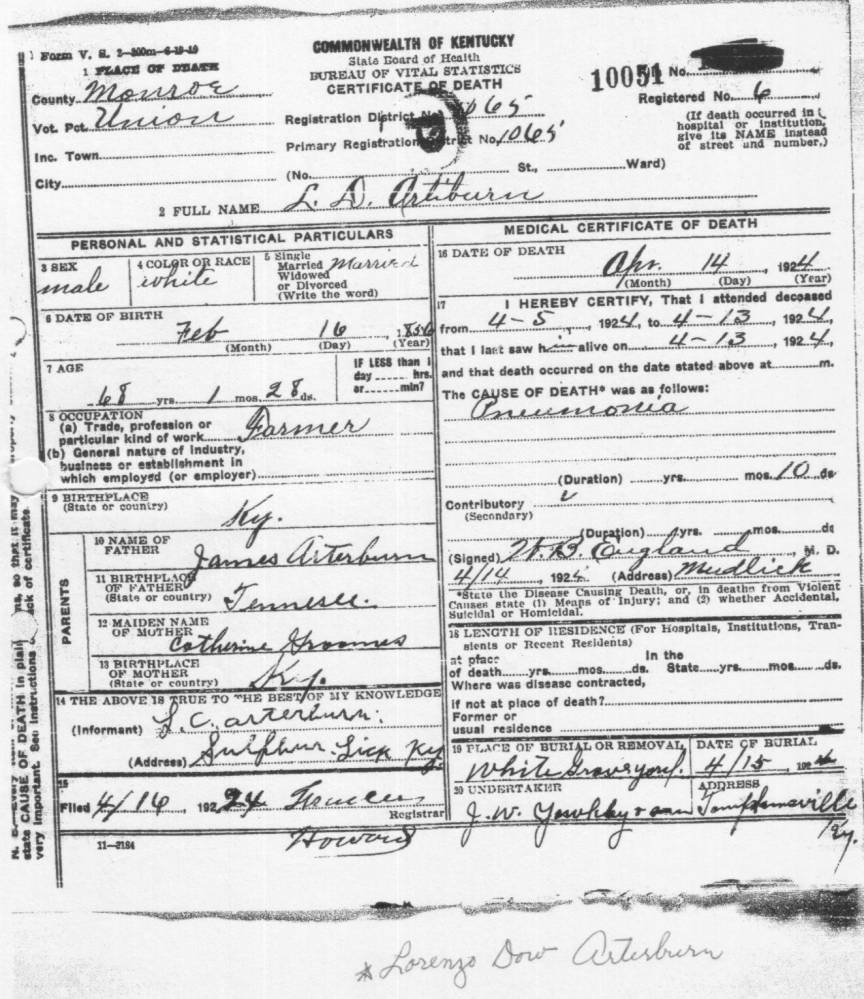 Form V. S. 2-300m-6-19-19
COMMONWEALTH OF KENTUCKY
State Board of Health
BUREAU OF VITAL STATISTICS
CERTIFICATE OF DEATH
1 PLACE OF DEATH
County Monroe
Vot. Pct. Union
Inc. Town
City
Registration District No. 1065
Primary Registration District No. 1065
(No. St., Ward)
10051
No.
Registered No. 6
(If death occurred in
hospital or institution,
give its NAME instead
of street and number.)
2 FULL NAME L. D. Artiburn
PERSONAL AND STATISTICAL PARTICULARS
3 SEX
male
4 COLOR OR RACE
white
5 Single
Married
Widowed
or Divorced
(Write the word)
Married
6 DATE OF BIRTH
Feb 16 1856
(Month) (Day) (Year)
7 AGE
68 yrs. 1 mos. 28 ds.
IF LESS than 1
day hrs.
or min?
8 OCCUPATION
(a) Trade, profession or
particular kind of work Farmer
(b) General nature of industry,
business or establishment in
which employed (or employer)
9 BIRTHPLACE
(State or country)
Ky.
PARENTS
10 NAME OF
FATHER
James Arterburn
11 BIRTHPLACE
OF FATHER
(State or country)
Tennesee.
12 MAIDEN NAME
OF MOTHER
Catherine Groomes
13 BIRTHPLACE
OF MOTHER
(State or country)
Ky.
14 THE ABOVE IS TRUE TO THE BEST OF MY KNOWLEDGE
(Informant) S. C. arterburn.
(Address) Sulphur Lick Ky
15
Filed 4/16, 192 24 Frances
Registrar
Howard
11-2184
MEDICAL CERTIFICATE OF DEATH
16 DATE OF DEATH
Apr. 14, 1924
(Month) (Day) (Year)
17 I HEREBY CERTIFY, That I attended deceased
from 4-5, 1924, to 4-13, 1924,
that I last saw him alive on 4-13, 1924,
and that death occurred on the date stated above at m.
The CAUSE OF DEATH* was as follows:
Pneumonia
(Duration) yrs. mos. 10 ds
Contributory
(Secondary)
(Duration) yrs. mos. ds
(Signed) W. B. England, M. D.
4/14, 1924 (Address) Mudlick
*State the Disease Causing Death, or, in deaths from Violent
Causes state (1) Means of Injury; and (2) whether Accidental,
Suicidal or Homicidal.
18 LENGTH OF RESIDENCE (For Hospitals, Institutions, Tran-
sients or Recent Residents)
at place In the
of death yrs. mos. ds. State yrs. mos. ds.
Where was disease contracted,
if not at place of death?
Former or
usual residence
19 PLACE OF BURIAL OR REMOVAL
White Graveyard.
DATE OF BURIAL
4/15, 1924
20 UNDERTAKER
J. W. & son
ADDRESS
Tompkinsville
Ky.
state CAUSE OF DEATH in plain
very important. See instructions
so that it may
back of certificate
* Lorenzo Dow Arterburn